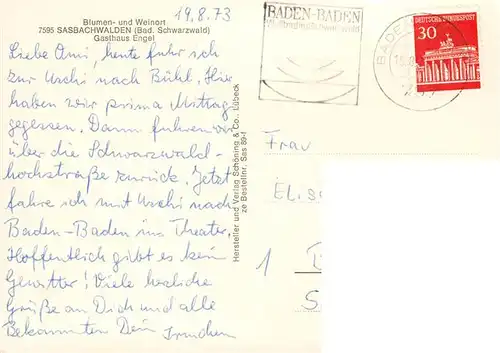 Blumen- und Weinort
7595 SASBACHWALDEN (Bad. Schwarzwald)
Gasthaus Engel
19.8.73
Liebe Omi, heute fuhr ich
zur Uschi nach Bühl. Hier
haben wir prima Mittag
gegessen. Dann fuhren wir
über die Schwarzwald-
hochstraße zurück. Jetzt
fahre ich mit Uschi nach
Baden-Baden ins Theater.
Hoffentlich gibt es kein
Gewitter! Viele herzliche
Grüße an Dich und alle
Bekannten Dein
Hersteller und Verlag Schöning & Co., Lübeck
Bestellnr. Sas 89
BADEN-BADEN
BADE
DEUTSCHE BUNDESPOST
30
Frau
1